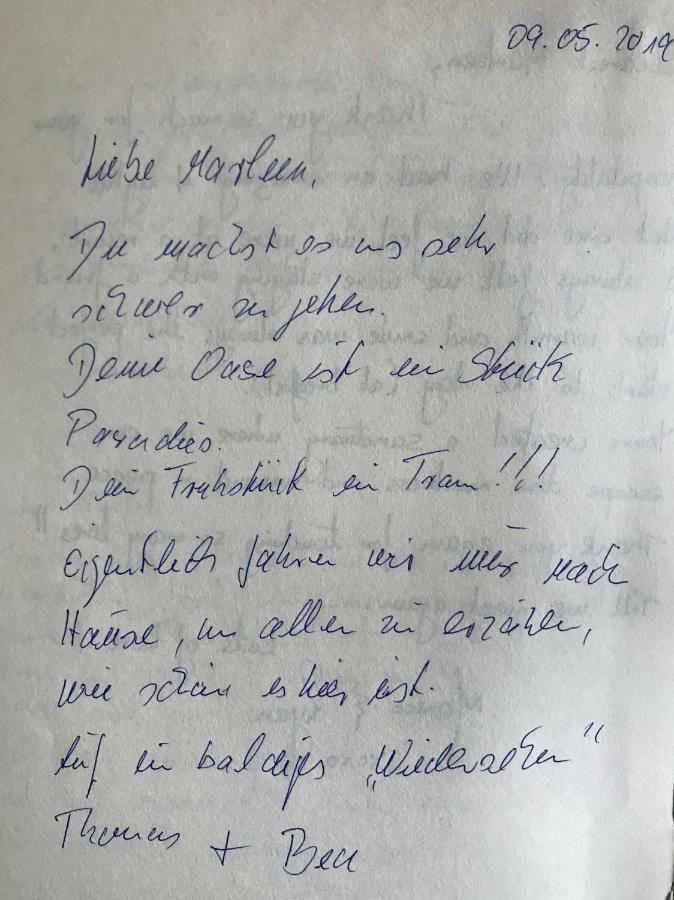 09.05.2019
Liebe Marleen,
Du machst es uns sehr
schwer zu gehen.
Deine Oase ist ein Stück
Paradies.
Dein Frühstück ein Traum!!!
Eigentlich fahren wir nur nach
Hause, um allen zu erzählen,
wie schön es hier ist.
Auf ein baldiges „Wiedersehen“
Thomas + Bea